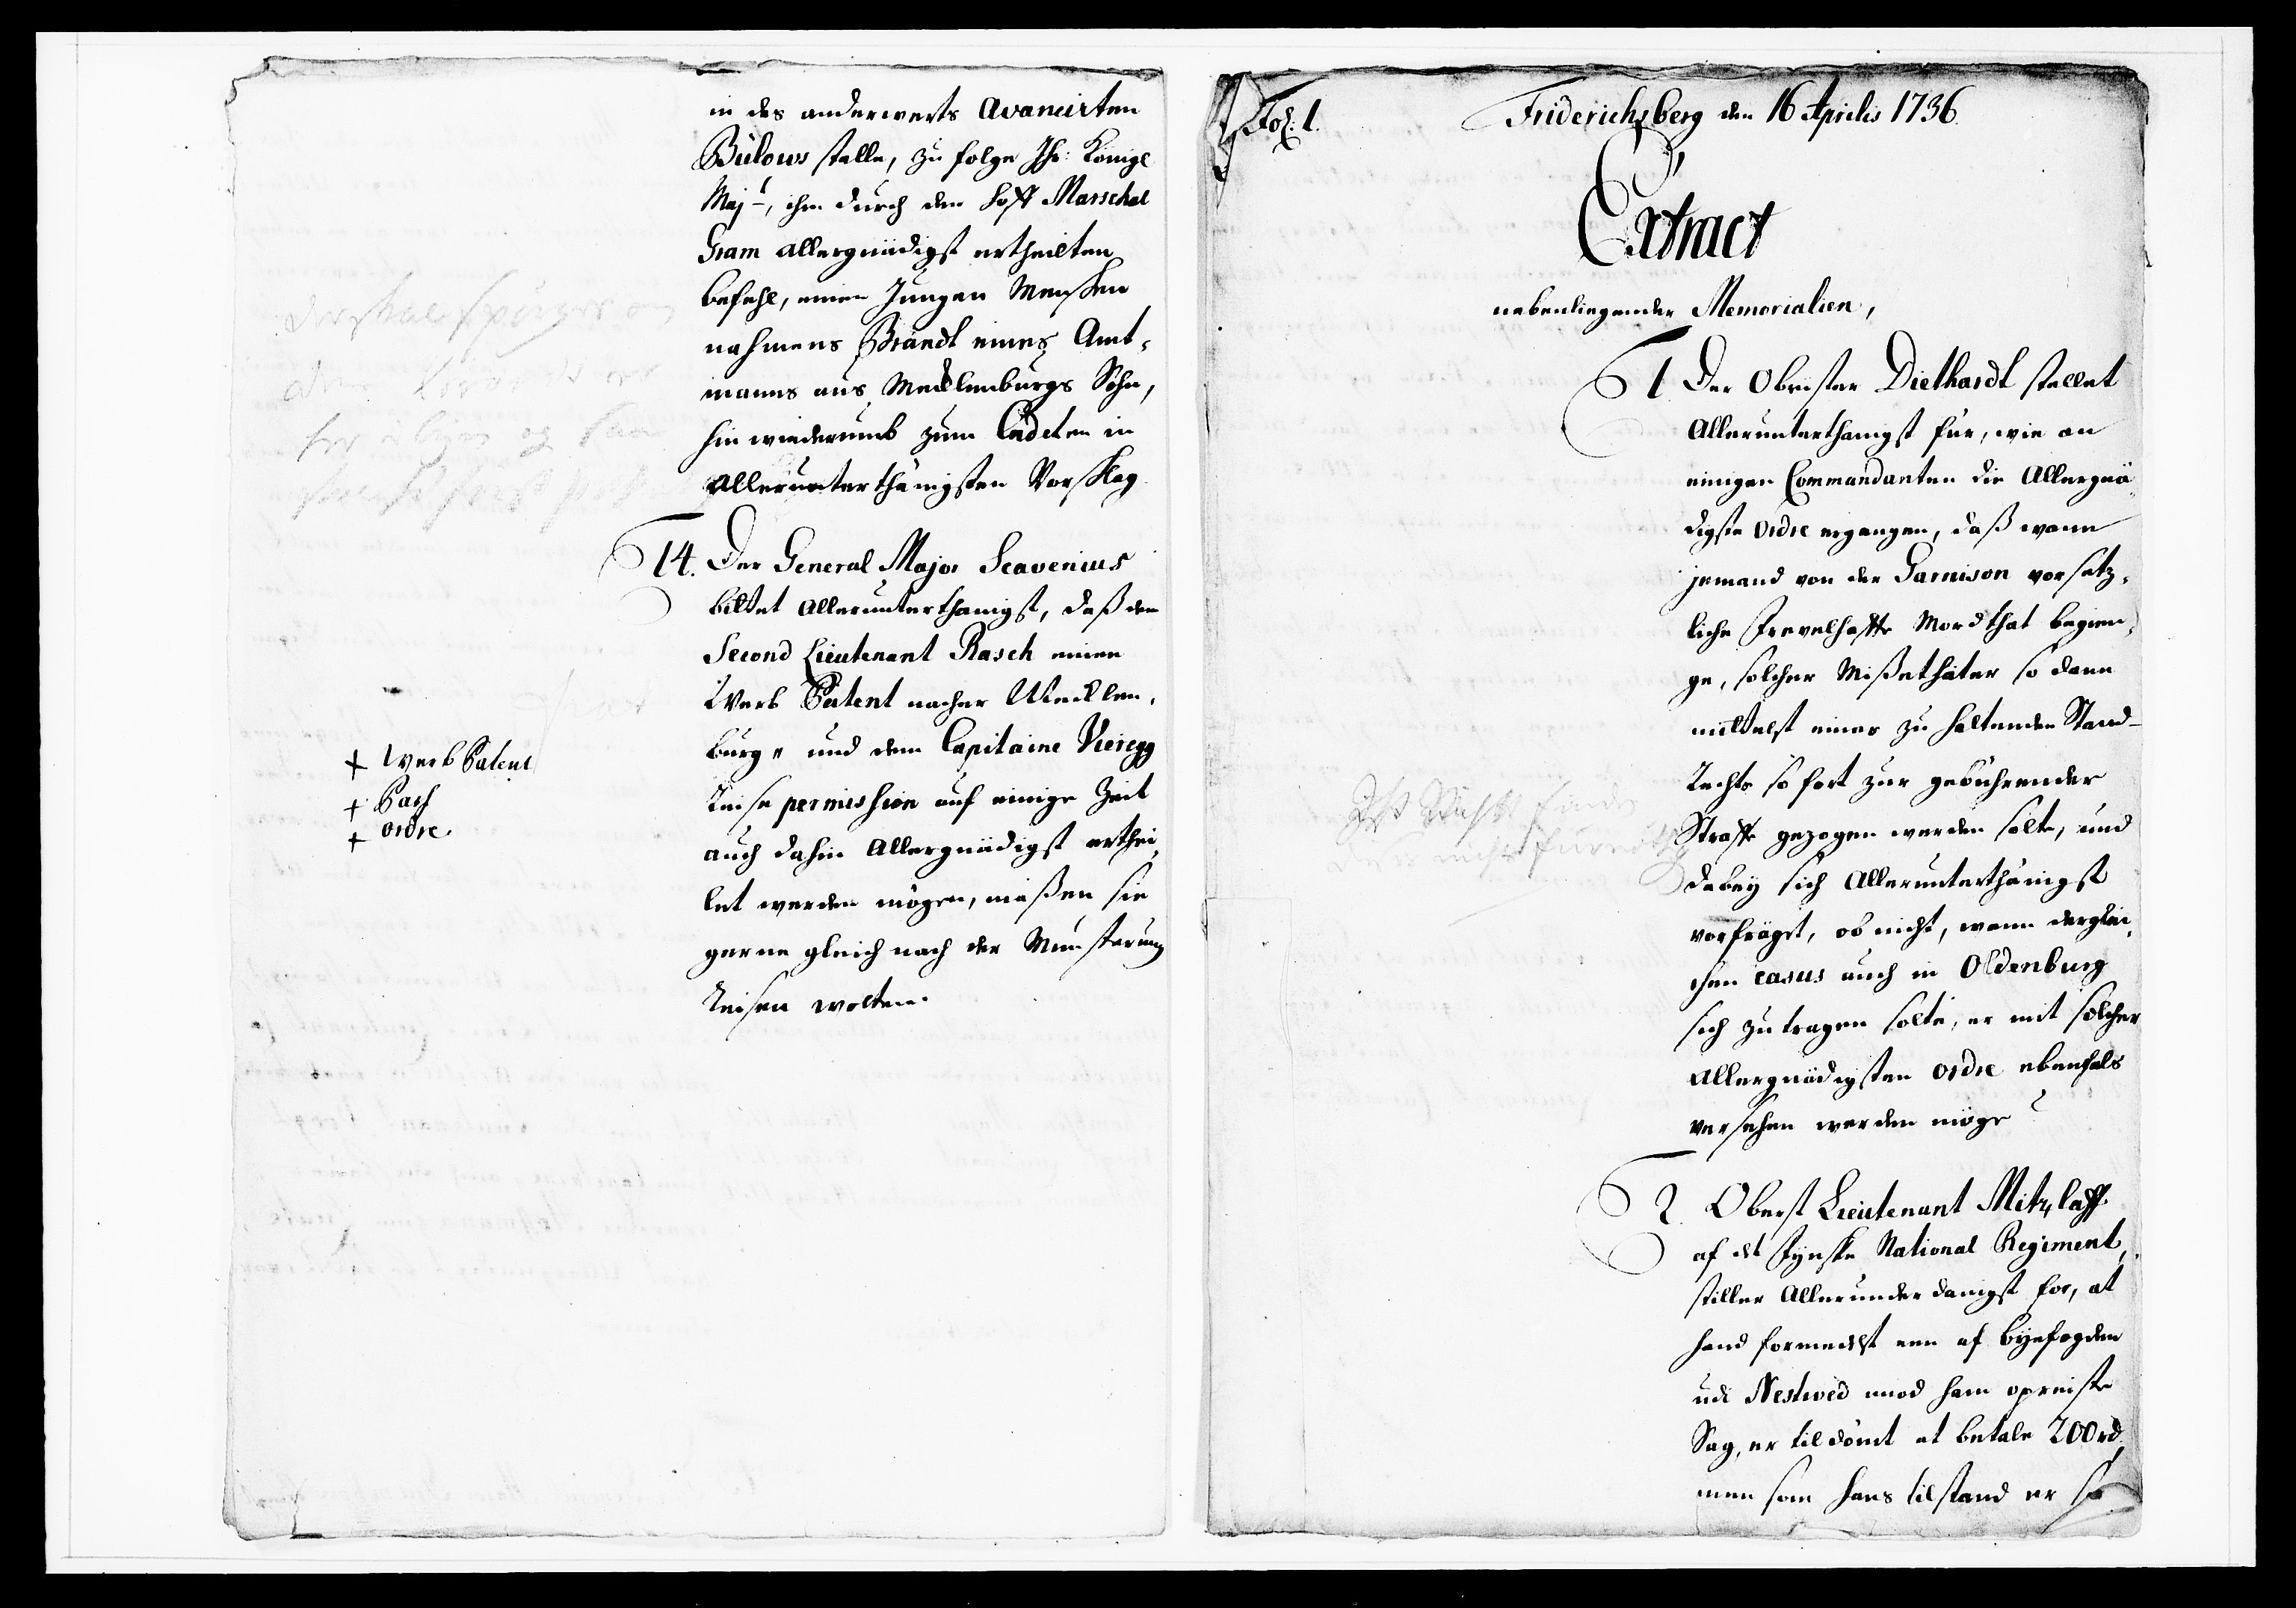 in des anderwerts Avancirten
Bülows stelle, zu folge Ihr: Königl
Maj:, ihm durch den Hoff Marschal
Gram allergnädigst ertheilten
befehl, einen Jungen Menschen
nahmens Brandt eines Amt-
manns aus Mecklenburgs Sohn,
hinwiederumb zum Cadeten in
allerunterthänigsten Vorschlag
14. Der General Major Scavenius
bittet allerunterthänigst, daß dem
Second Lieutenant Rasch einen
Werb Patent nacher Mecklen-
burg und dem Capitaine Vieregg
Reise permission auf einige Zeit
auch dahin Allergnädigst erthei-
let werden mögen, maßen sie
gerne gleich nach der Munsterung
Reisen wolten.
+ Werb Patent
+ Pass
+ ordre.
Fol: 1.
Friderichsberg den 16 Aprilis 1736.
Extract
nebenliegender Memorialien,
1. Der Obrister Diethardt stellet
Allerunterthänigst für, wie an
einigen Commandanten die Allergnä-
digste Ordre ergangen, daß wann
jemand von der Garnison vorsetz-
liche Frevelhaffte Mordthat begien-
ge, solcher Mißethäter so dann
mittelst eines zu haltenden Stand-
Rechts so fort zur gebührender
Straffe gezogen werden solte, und
dabey sich Allerunterthänigst
vorfräget, ob nicht, wann derglei-
chen casus auch in Oldenburg
sich zutragen solte, er mit solcher
Allergnädigsten Ordre ebenfals
versehen werden möge?
2. Oberst Lieutenant Mitzlaff
af det Fynske National Regiment,
stiller Allerunderdanigst for, at
hand formedelst een af byefogden
udi Nestwed imod ham opreiste
Sag, er tildömt at betale 200 rd
men som hans tilstand er så